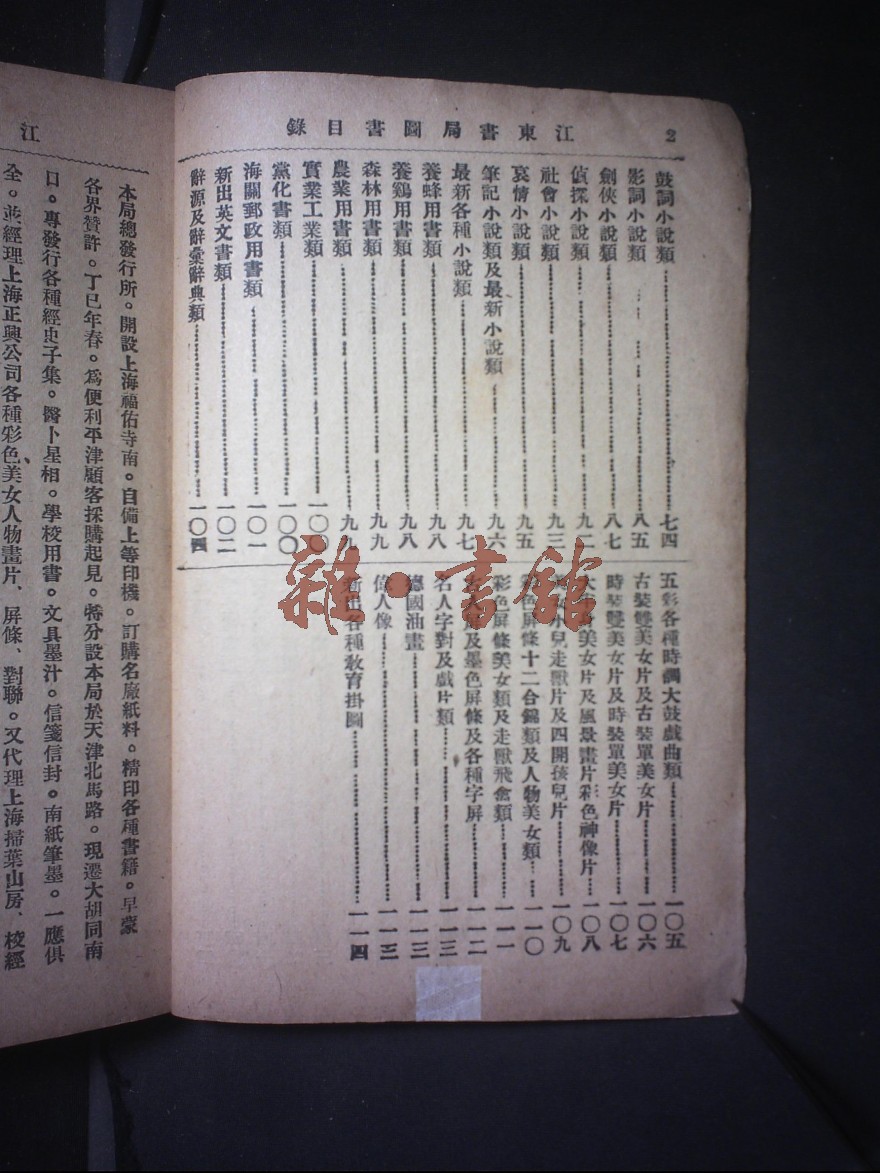 江東書局圖書目錄
2
鼓詞小說類 七四
影詞小說類 八五
劍俠小說類 八七
偵探小說類 九二
社會小說類 九三
哀情小說類 九五
筆記小說類及最新小說類 九六
最新各種小說類 九七
養蜂用書類 九八
養鷄用書類 九八
森林用書類 九九
農業用書類 九九
實業工業類 一〇〇
黨化書類 一〇〇
海關郵政用書類 一〇一
新出英文書類 一〇二
辭源及辭彙辭典類 一〇四
五彩各種時調大鼓戲曲類 一〇五
古裝雙美女片及古裝單美女片 一〇六
時裝雙美女片及時裝單美女片 一〇七
美女片及風景畫片彩色神像片 一〇八
兒走獸片及四開孩兒片 一〇九
色屏條十二合錦類及人物美女類 一一〇
彩色屏條美女類及走獸飛禽類 一一一
及墨色屏條及各種字屏 一一二
名人字對及戲片類 一一三
德國油畫 一一三
偉人像 一一三
新出各種敎育掛圖 一一四
雜·書館
江
本局總發行所。開設上海福佑寺南。自備上等印機。訂購名廠紙料。精印各種書籍。早蒙
各界贊許。丁巳年春。爲便利平津顧客採購起見。特分設本局於天津北馬路。現遷大胡同南
口。專發行各種經史子集。醫卜星相。學校用書。文具墨汁。信箋信封。南紙筆墨。一應俱
全。並經理上海正興公司各種彩色美女人物畫片、屏條、對聯。又代理上海掃葉山房、校經